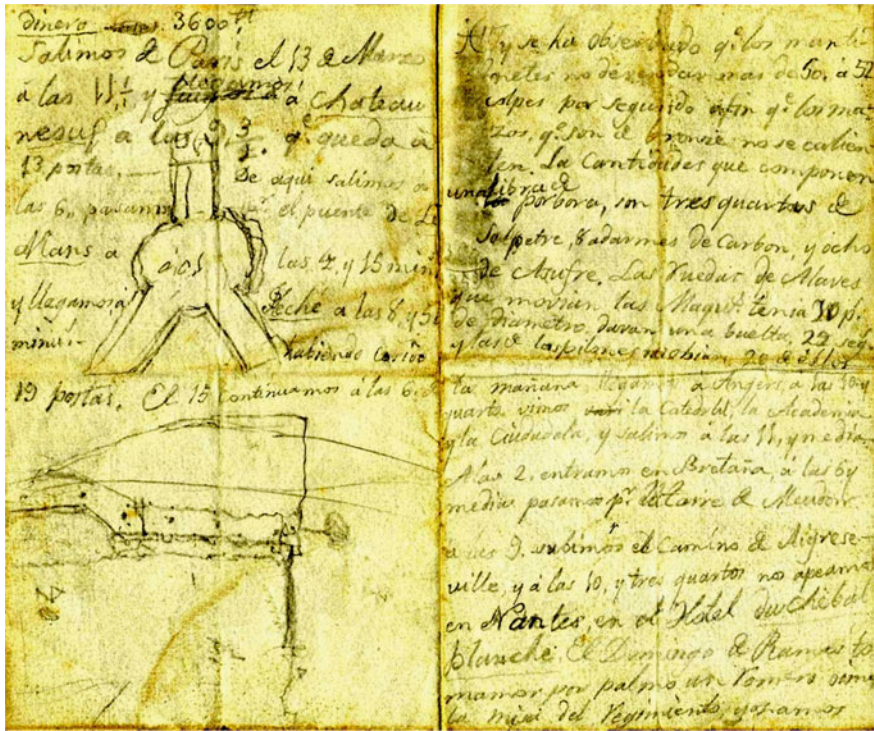 dinero 3600
Salimos de Paris el 13 de Marzo
á las 11 y llegamos á Chateau
neuf a las 9 3/2. q.e queda á
13 postas.
De aqui salimos a
las 6, pasamos el puente de Le
Mans a las 7, y 15 min
y llegamos á Fleché a las 8, y 5
minu.
habiendo corrido
19 postas. El 15 continuamos á las 6, de
y se ha observado q.e los marti
netes no deven dar mas de 50, á 52
golpes por segundo afin q.e los ma-
zos, q.e son de bronze no se calien
ten. La Cantidades que componen
una libra de
porbora, son tres quartas de
Salpetre, 8 adarmes de Carbon, y ocho
de Asufre. Las Ruedas de Alaves
que movian las Maqui.s tenia 30 p.
de diametro, davan una buelta, 22 seg.
y las de los pilones
la mañana llegamos á Angers, a las 10 y
quarto vimos la Catedral, la Academia
y la Ciudadela, y salimos á las 11, y media
A las 2, entramos en Bretaña, á las 6 y
media pasamos p.r
á las 9. subimos el Camino de Aigrese-
ville, y á las 10, y tres quartos nos apeamos
en Nantes, en el Hotel du Chebal
blanche. El Domingo de Ramos to
mamos por palmo un Romero oimos
la misa del Regimiento, y pasamos